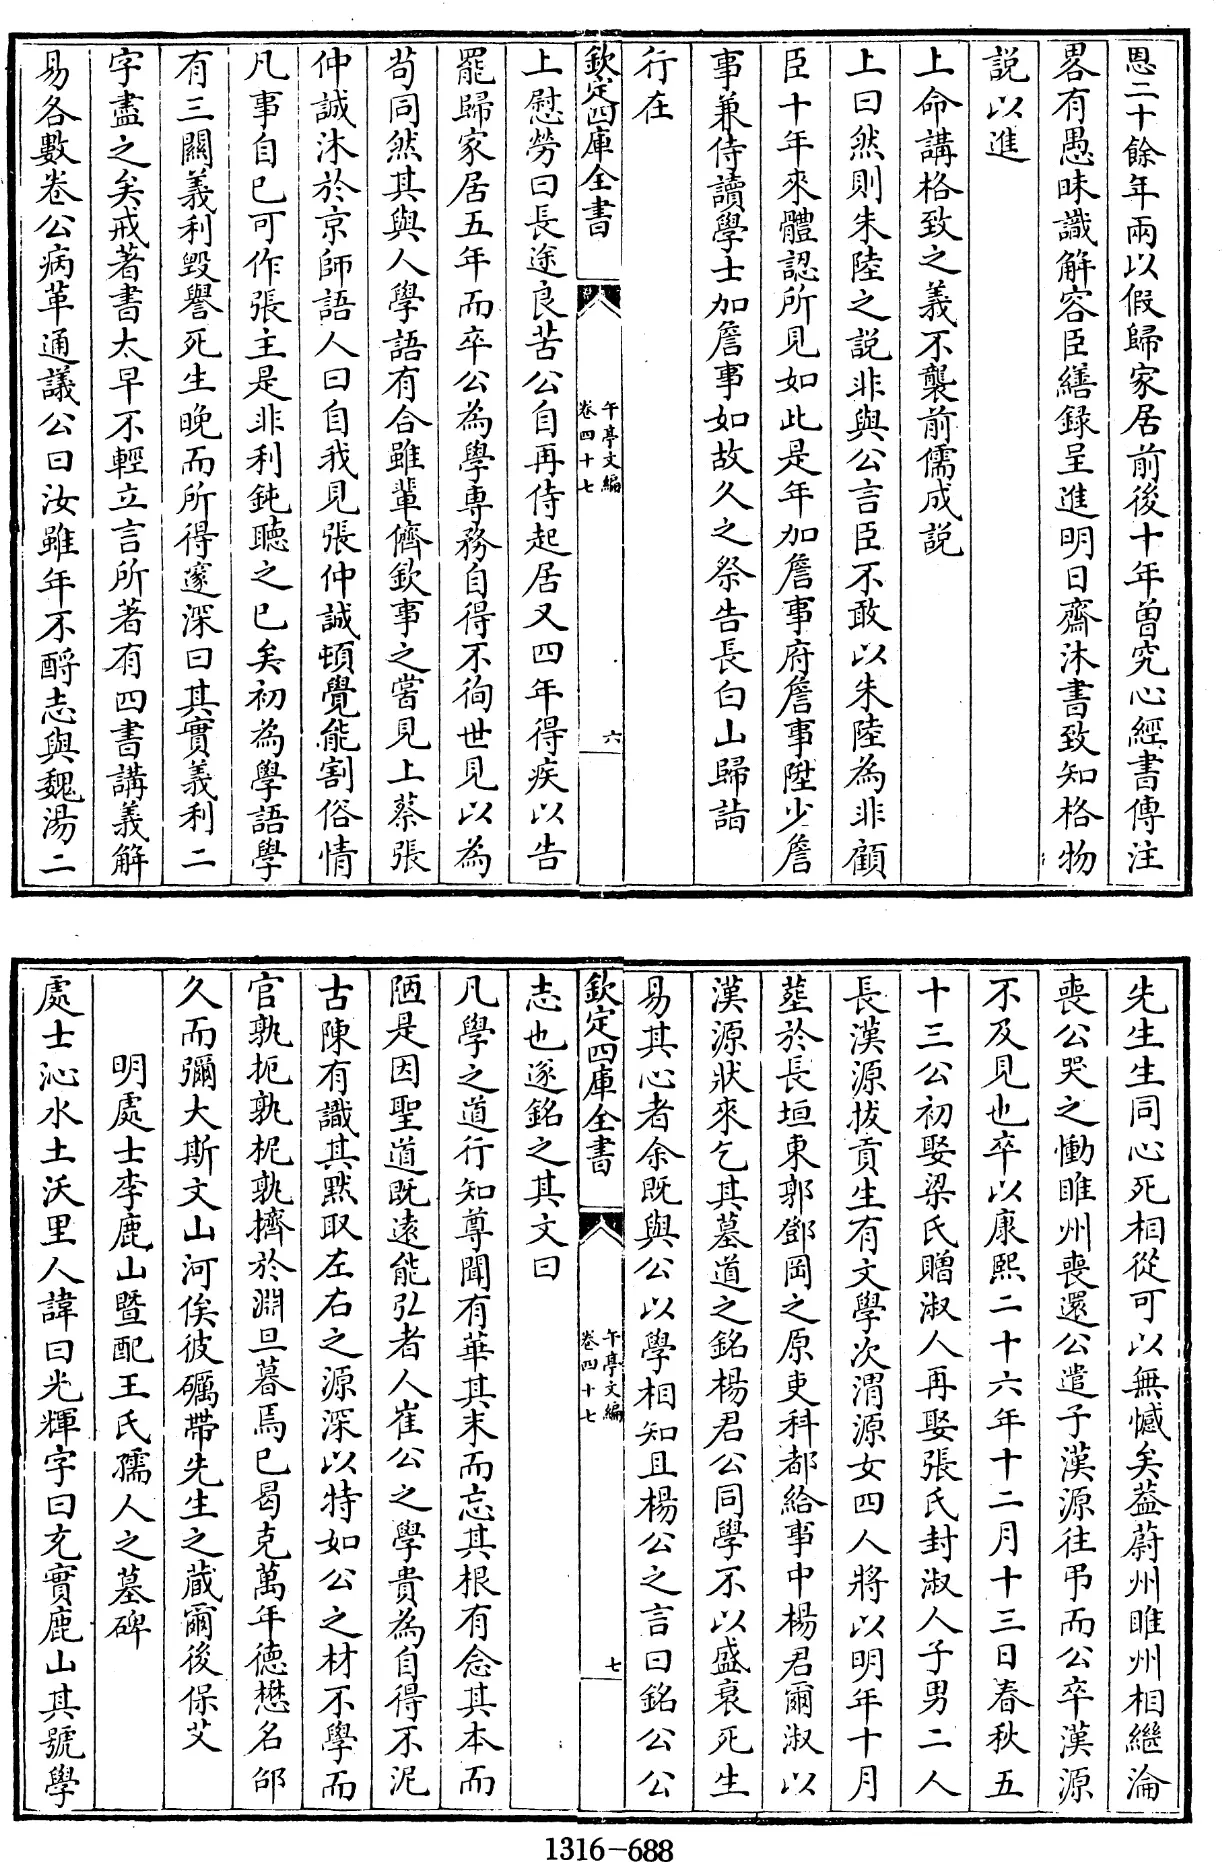 恩二十餘年兩以假歸家居前後十年曽究心經書傳注
畧有愚昧識解容臣繕録呈進明日齋沐書致知格物
説以進
上命講格致之義不襲前儒成説
上曰然則朱陸之説非與公言臣不敢以朱陸為非顧
臣十年來體認所見如此是年加詹事府詹事陞少詹
事兼侍讀學士加詹事如故久之祭告長白山歸詣
行在
欽定四庫全書
午亭文編
卷四十七
六
上慰勞曰長途良苦公自再侍起居又四年得疾以告
罷歸家居五年而卒公為學專務自得不徇世見以為
苟同然其與人學語有合雖輩儕欽事之嘗見上蔡張
仲誠沐於京師語人曰自我見張仲誠頓覺能割俗情
凡事自已可作張主是非利鈍聽之已矣初為學語學
有三關義利毀譽死生晚而所得邃深曰其實義利二
字盡之矣戒著書太早不輕立言所著有四書講義解
易各數卷公病革通議公曰汝雖年不酹志與魏湯二
先生生同心死相從可以無憾矣葢蔚州睢州相繼淪
喪公哭之慟睢州喪還公遣子漢源往弔而公卒漢源
不及見也卒以康熙二十六年十二月十三日春秋五
十三公初娶梁氏贈淑人再娶張氏封淑人子男二人
長漢源拔貢生有文學次渭源女四人將以明年十月
塟於長垣東郭鄧岡之原吏科都給事中楊君爾淑以
漢源狀來乞其墓道之銘楊君公同學不以盛衰死生
易其心者余既與公以學相知且楊公之言曰銘公公
欽定四庫全書
午亭文編
卷四十七
七
志也遂銘之其文曰
凡學之道行知尊聞有華其末而忘其根有念其本而
陋是因聖道既遠能弘者人崔公之學貴為自得不泥
古陳有識其黙取左右之源深以特如公之材不學而
官孰扼孰柅孰擠於淵旦暮焉已曷克萬年德懋名邵
久而彌大斯文山河俟彼礪帶先生之蔵爾後保艾
明處士李鹿山暨配王氏孺人之墓碑
處士沁水土沃里人諱曰光輝字曰充實鹿山其號學
1316-688